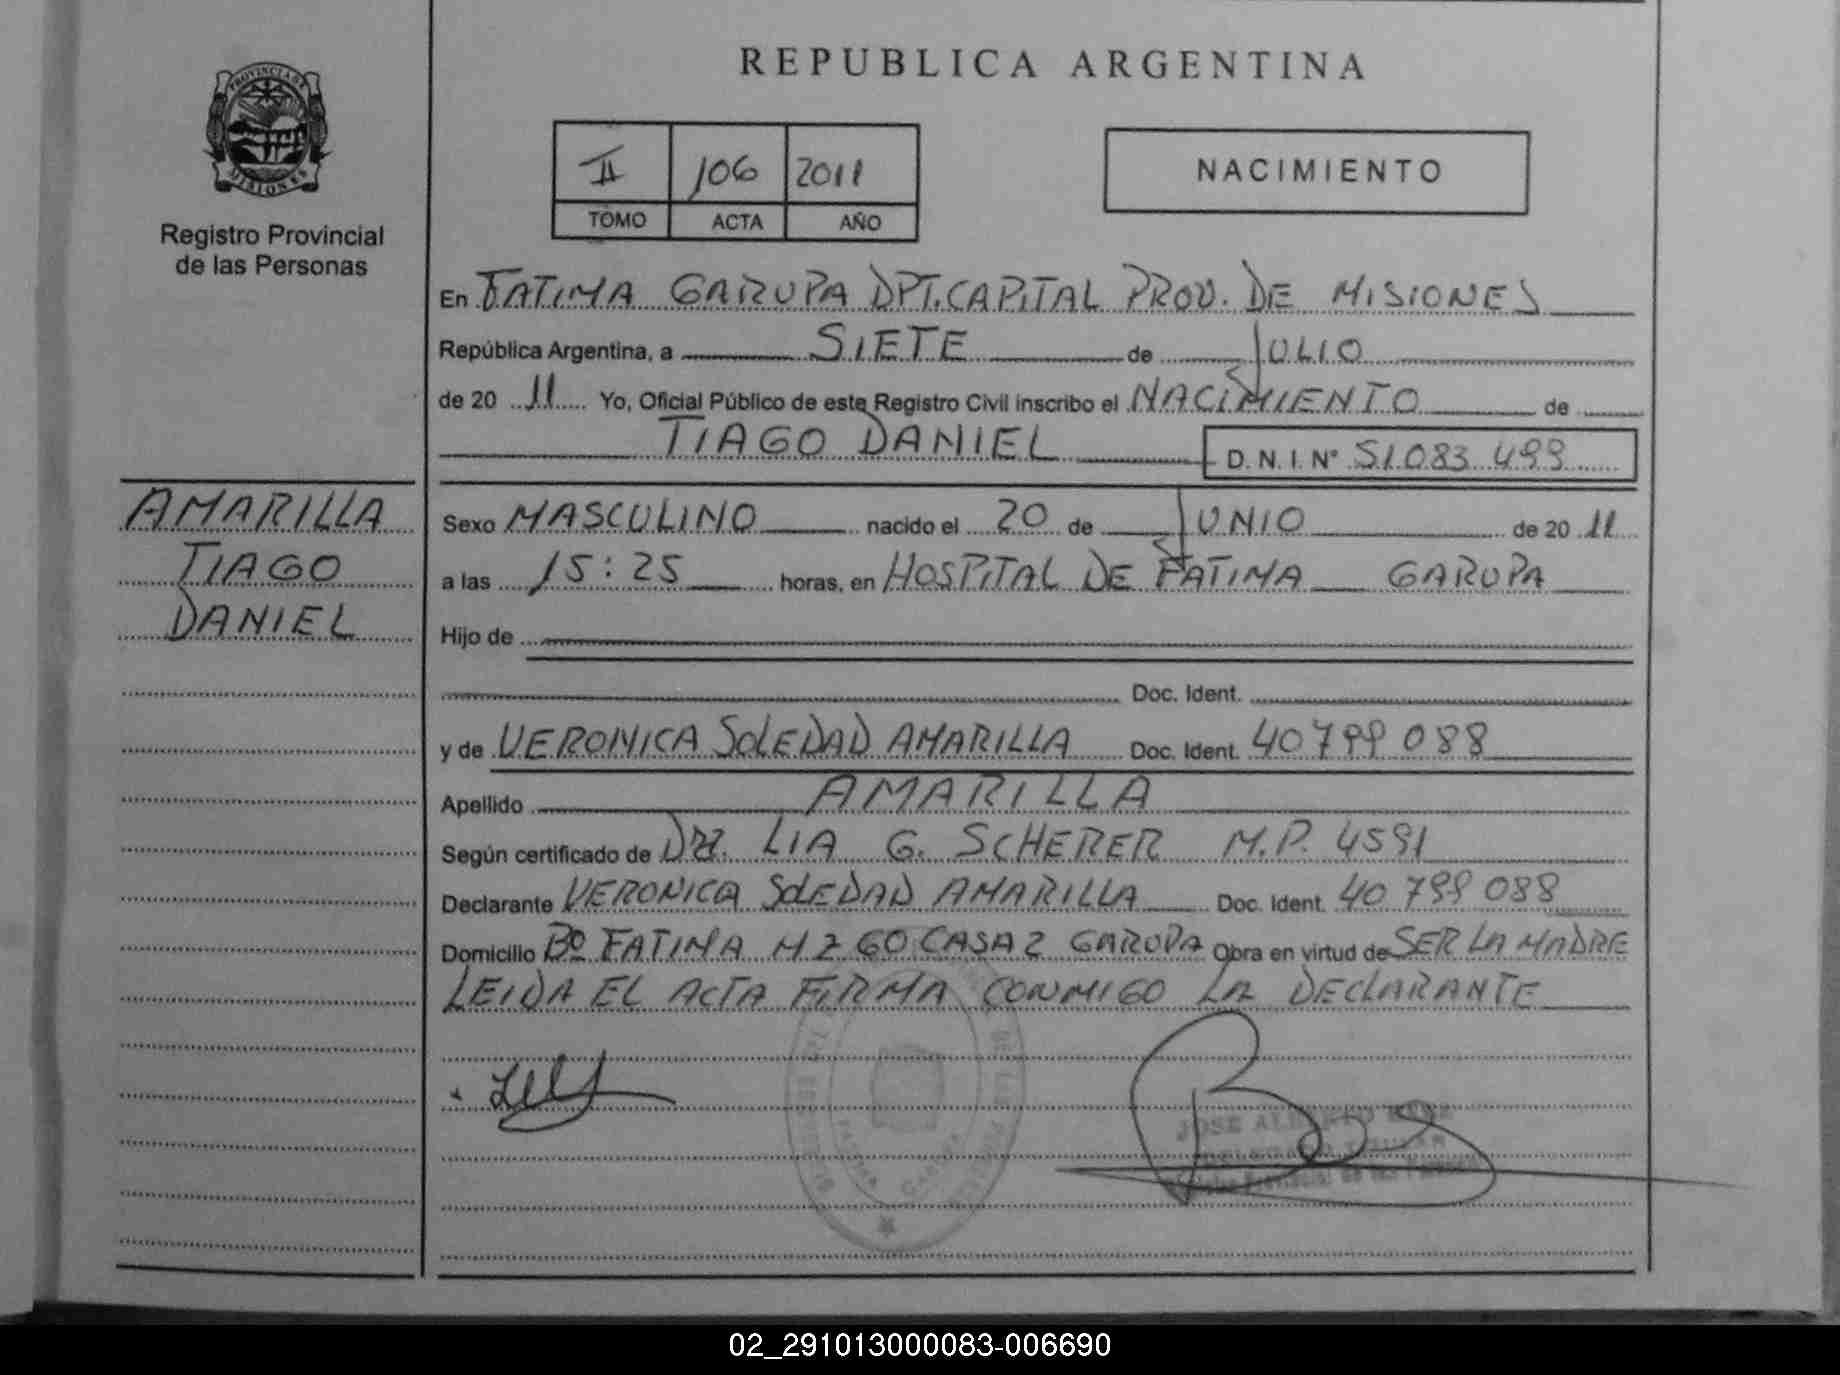 REPUBLICA ARGENTINA
PROVINCIA DE
MISIONES
Registro Provincial
de las Personas
II 106 2011
TOMO ACTA AÑO
NACIMIENTO
En FATIMA GARUPA DPT. CAPITAL PROV. DE MISIONES
República Argentina, a SIETE de JULIO
de 20 11 Yo, Oficial Público de este Registro Civil inscribo el NACIMIENTO de
TIAGO DANIEL D.N.I. N° 51.083.499
AMARILLA
TIAGO
DANIEL
Sexo MASCULINO nacido el 20 de JUNIO de 20 11
a las 15:25 horas, en HOSPITAL DE FATIMA GARUPA
Hijo de
Doc. Ident.
y de VERONICA SOLEDAD AMARILLA Doc. Ident. 40 799 088
Apellido AMARILLA
Según certificado de DRA. LIA G. SCHERER M.P. 4591
Declarante VERONICA SOLEDAD AMARILLA Doc. Ident. 40 799 088
Domicilio Bº FATIMA MZ 60 CASA 2 GARUPA Obra en virtud de SER LA MADRE
LEIDA EL ACTA FIRMA CONMIGO LA DECLARANTE
JOSE ALBERTO
Provincial de las
FATIMA GARUPA
02_291013000083-006690